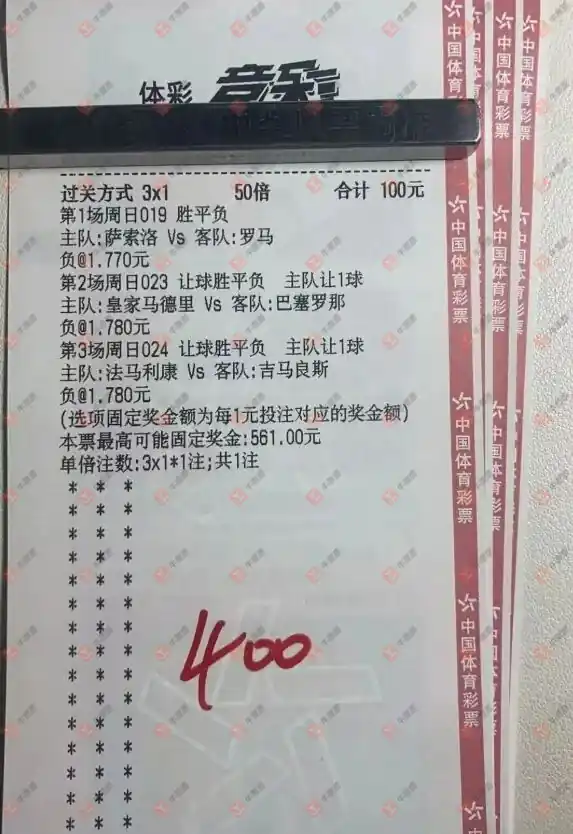 体彩 竞彩
过关方式 3x1 50倍 合计 100元
第1场周日019 胜平负
主队:萨索洛 Vs 客队:罗马
负@1.770元
第2场周日023 让球胜平负 主队让1球
主队:皇家马德里 Vs 客队:巴塞罗那
负@1.780元
第3场周日024 让球胜平负 主队让1球
主队:法马利康 Vs 客队:吉马良斯
负@1.780元
(选项固定奖金额为每1元投注对应的奖金额)
本票最高可能固定奖金:561.00元
单倍注数:3x1*1注;共1注
* * *
* * *
* * *
* * *
* * *
* * *
* * *
* * *
* * *
* * *
* * *
* * *
* * *
* * *
* * *
400
中国体育彩票
中国体育彩票
中国体育彩票
中国体育彩票